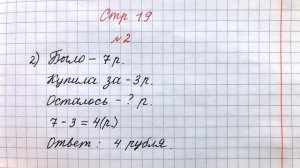 Стр 19
№2
2) Было – 7 р.
Купила за – 3 р.
Осталось – ? р.
7 – 3 = 4 (р.)
Ответ : 4 рубля.